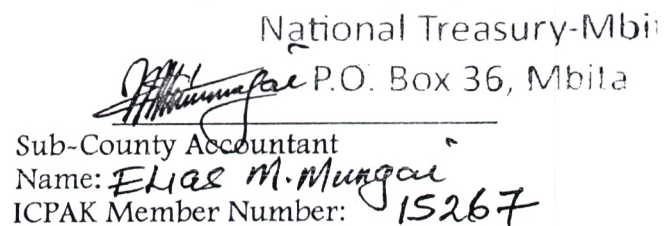 National Treasury-Mbi
P.O. Box 36, Mbita
Sub-County Accountant
Name: Elias M. Mungai
ICPAK Member Number: 15267